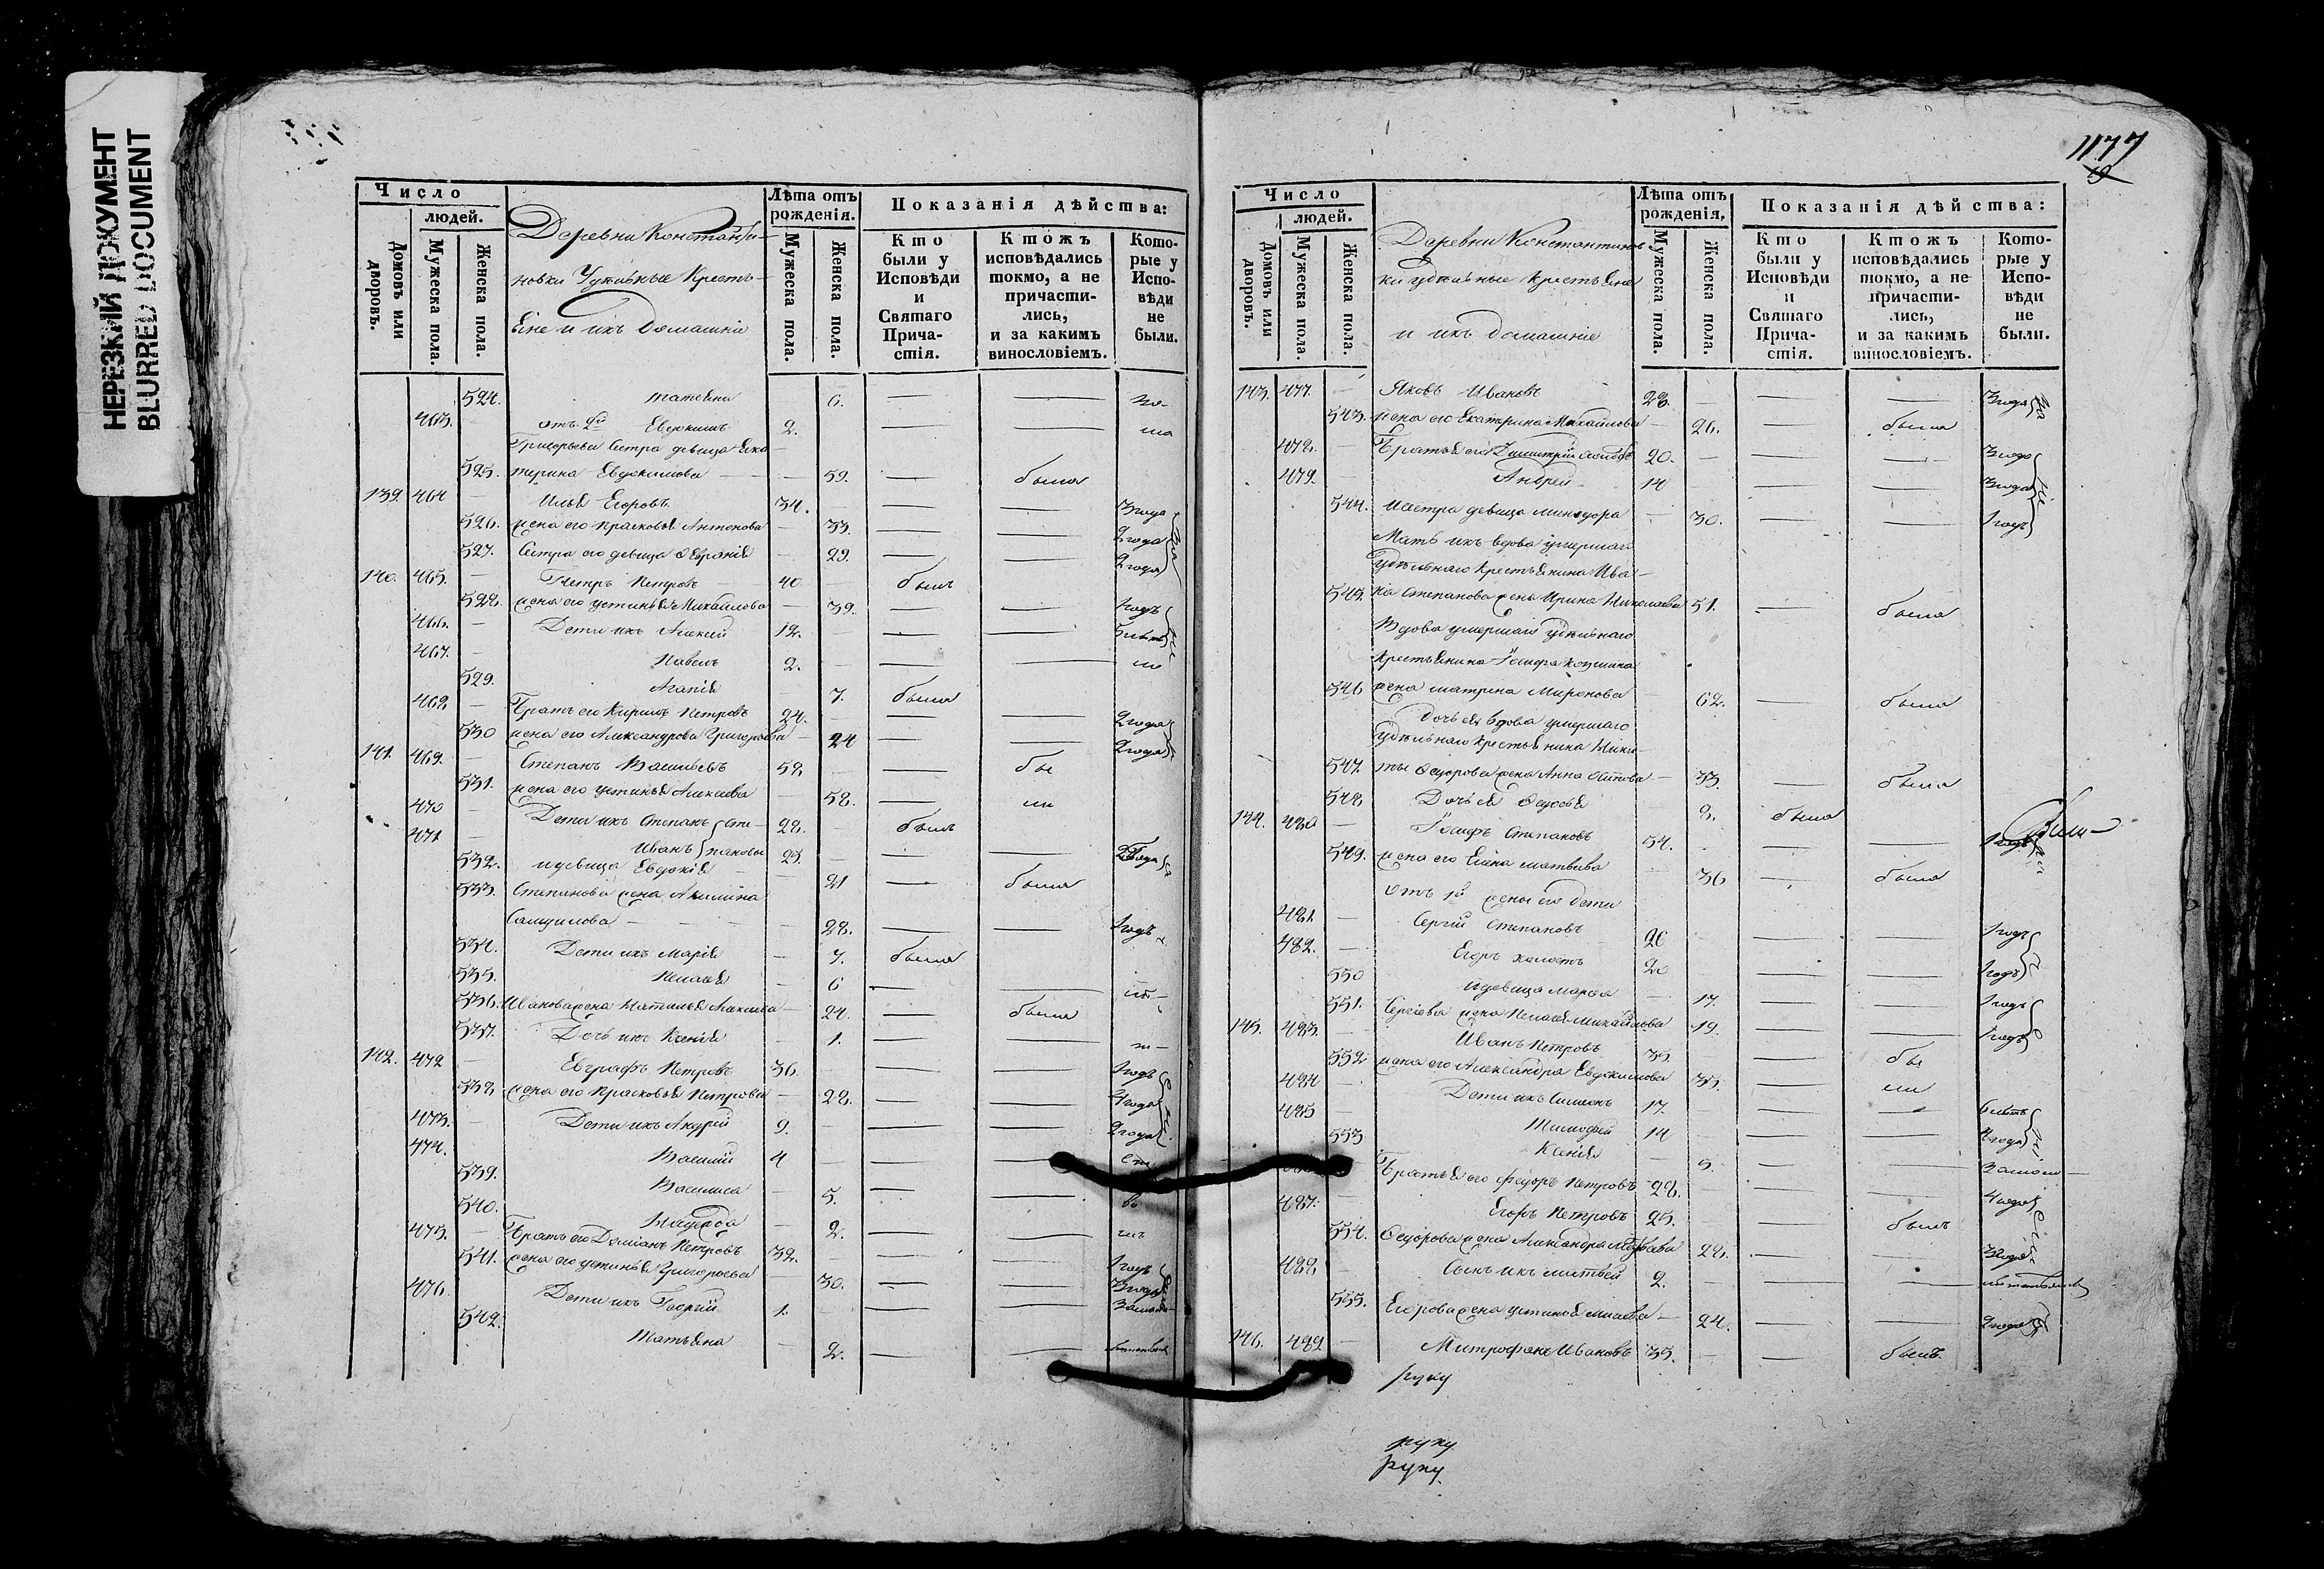 НЕРЕЗКИЙ ДОКУМЕНТ
BLURRED DOCUMENT
Число
людей.
Домовъ или дворовъ.
Мужеска пола.
Женска пола.
Деревни Константи-
новки Удѣльные Кресть-
яне и ихъ домашніе
Лѣта отъ рожденія.
Мужеска пола.
Женска пола.
Показанія дѣйства:
Кто были у Исповѣди и Святаго Причастія.
Ктожъ исповѣдались токмо, а не причастились, и за какимъ винословіемъ.
Которые у Исповѣди не были.
524. Татьяна 6. за-
463. отъ 2й Евдокимъ 2.
Григорьева Сестра девица Ека-
525. терина Евдокимова 59. была
139. 464 Илья Егоровъ 34. 3 года
526. жена его Прасковья Антонова 33. 2 года
527. Сестра его девица Евгенія 29. 2 года
140. 465. Петръ Петровъ 40. былъ
528. жена его Устинья Михайлова 39. 1 годъ
466. Дети ихъ Алексей 12. 5 летъ
467. Павелъ 2.
529. Агапія 7. была
468 Братъ его Кирилъ Петровъ 24. 2 года
530 жена его Александра Григорьева 24 2 года
141. 469. Степанъ Васильевъ 58 бы
531. жена его Устинья Алексеева 58. ли
470 Дети ихъ Степанъ Сте- 28. былъ
471 Иванъ пановы 25. 2 года
532. и девица Евдокія 21 была
533. Степанова жена Акилина
Самуилова 28. 1 годъ
534. Дети ихъ Марія 7. была
535. Пелагея 6
536. Иванова жена Наталья Алексеева 24. была
537. Дочь ихъ Ксенія 1.
142. 472 Евграфъ Петровъ 36. 1 годъ
538 жена его Прасковья Петрова 28. 4 года
473. Дети ихъ Андрей 9. 2 года
474. Василій 4
539. Василиса 5.
540. 2.
475. Братъ его Деміанъ Петровъ 32. 1 годъ
541. жена его Устинья Григорьева 30. 3 года
476. Дети ихъ Георгій 1.
542. Татьяна 2.
1177
19
Число
людей.
Домовъ или дворовъ.
Мужеска пола.
Женска пола.
Деревни Константинов-
ки удѣльные крестьяне
и ихъ домашніе
Лѣта отъ рожденія.
Мужеска пола.
Женска пола.
Показанія дѣйства:
Кто были у Исповѣди и Святаго Причастія.
Ктожъ исповѣдались токмо, а не причастились, и за какимъ винословіемъ.
Которые у Исповѣди не были.
143. 477. Яковъ Ивановъ 28. 3 года за
543. жена его Екатерина Михайлова 26. была
478. Братья его Димитрій 20. 3 года
479. Андрей 14 3 года
544. Сестра девица Минодора 30. 1 годъ
Мать ихъ вдова умершаго
удѣльнаго крестьянина Ива-
545. на Степанова жена Ирина Николаева 51. была
Вдова умершаго удѣльнаго
крестьянина Іосифа Козмина
546 жена Матрена Миронова 62. была
дочь ея вдова умершаго
удѣльнаго крестьянина Ники-
547. ты Федорова жена Анна Осипова 33. была
548 Дочь ея Федосья 8. была
144. 480 Іосифъ Степановъ 54. 1 годъ
549. жена его Елена Матвеева 36 была
отъ 1й жены его дети
481 Сергій Степановъ 26 1 годъ
482. Егоръ холостъ 20 1 годъ
550 и девица Марфа 17. 1 годъ
551. Сергіева жена Пелагея Михайлова 19. 1 годъ
145. 483. Иванъ Петровъ 35. бы
552 жена его Александра Евдокимова 35. ли
484 Дети ихъ Симеонъ 17. 6 летъ
485 Тимофей 14 4 года
553 Ксенія 5.
Братья его Федоръ Петровъ 28. 4 года
487. Егоръ Петровъ 25. былъ
554. Федорова жена Александра 28. 3 года
488 Сынъ ихъ Матвей 2.
555. Егорова жена Устинья 24. 2 года
146. 489 Митрофанъ Ивановъ 35. былъ.
руку
руку
руку